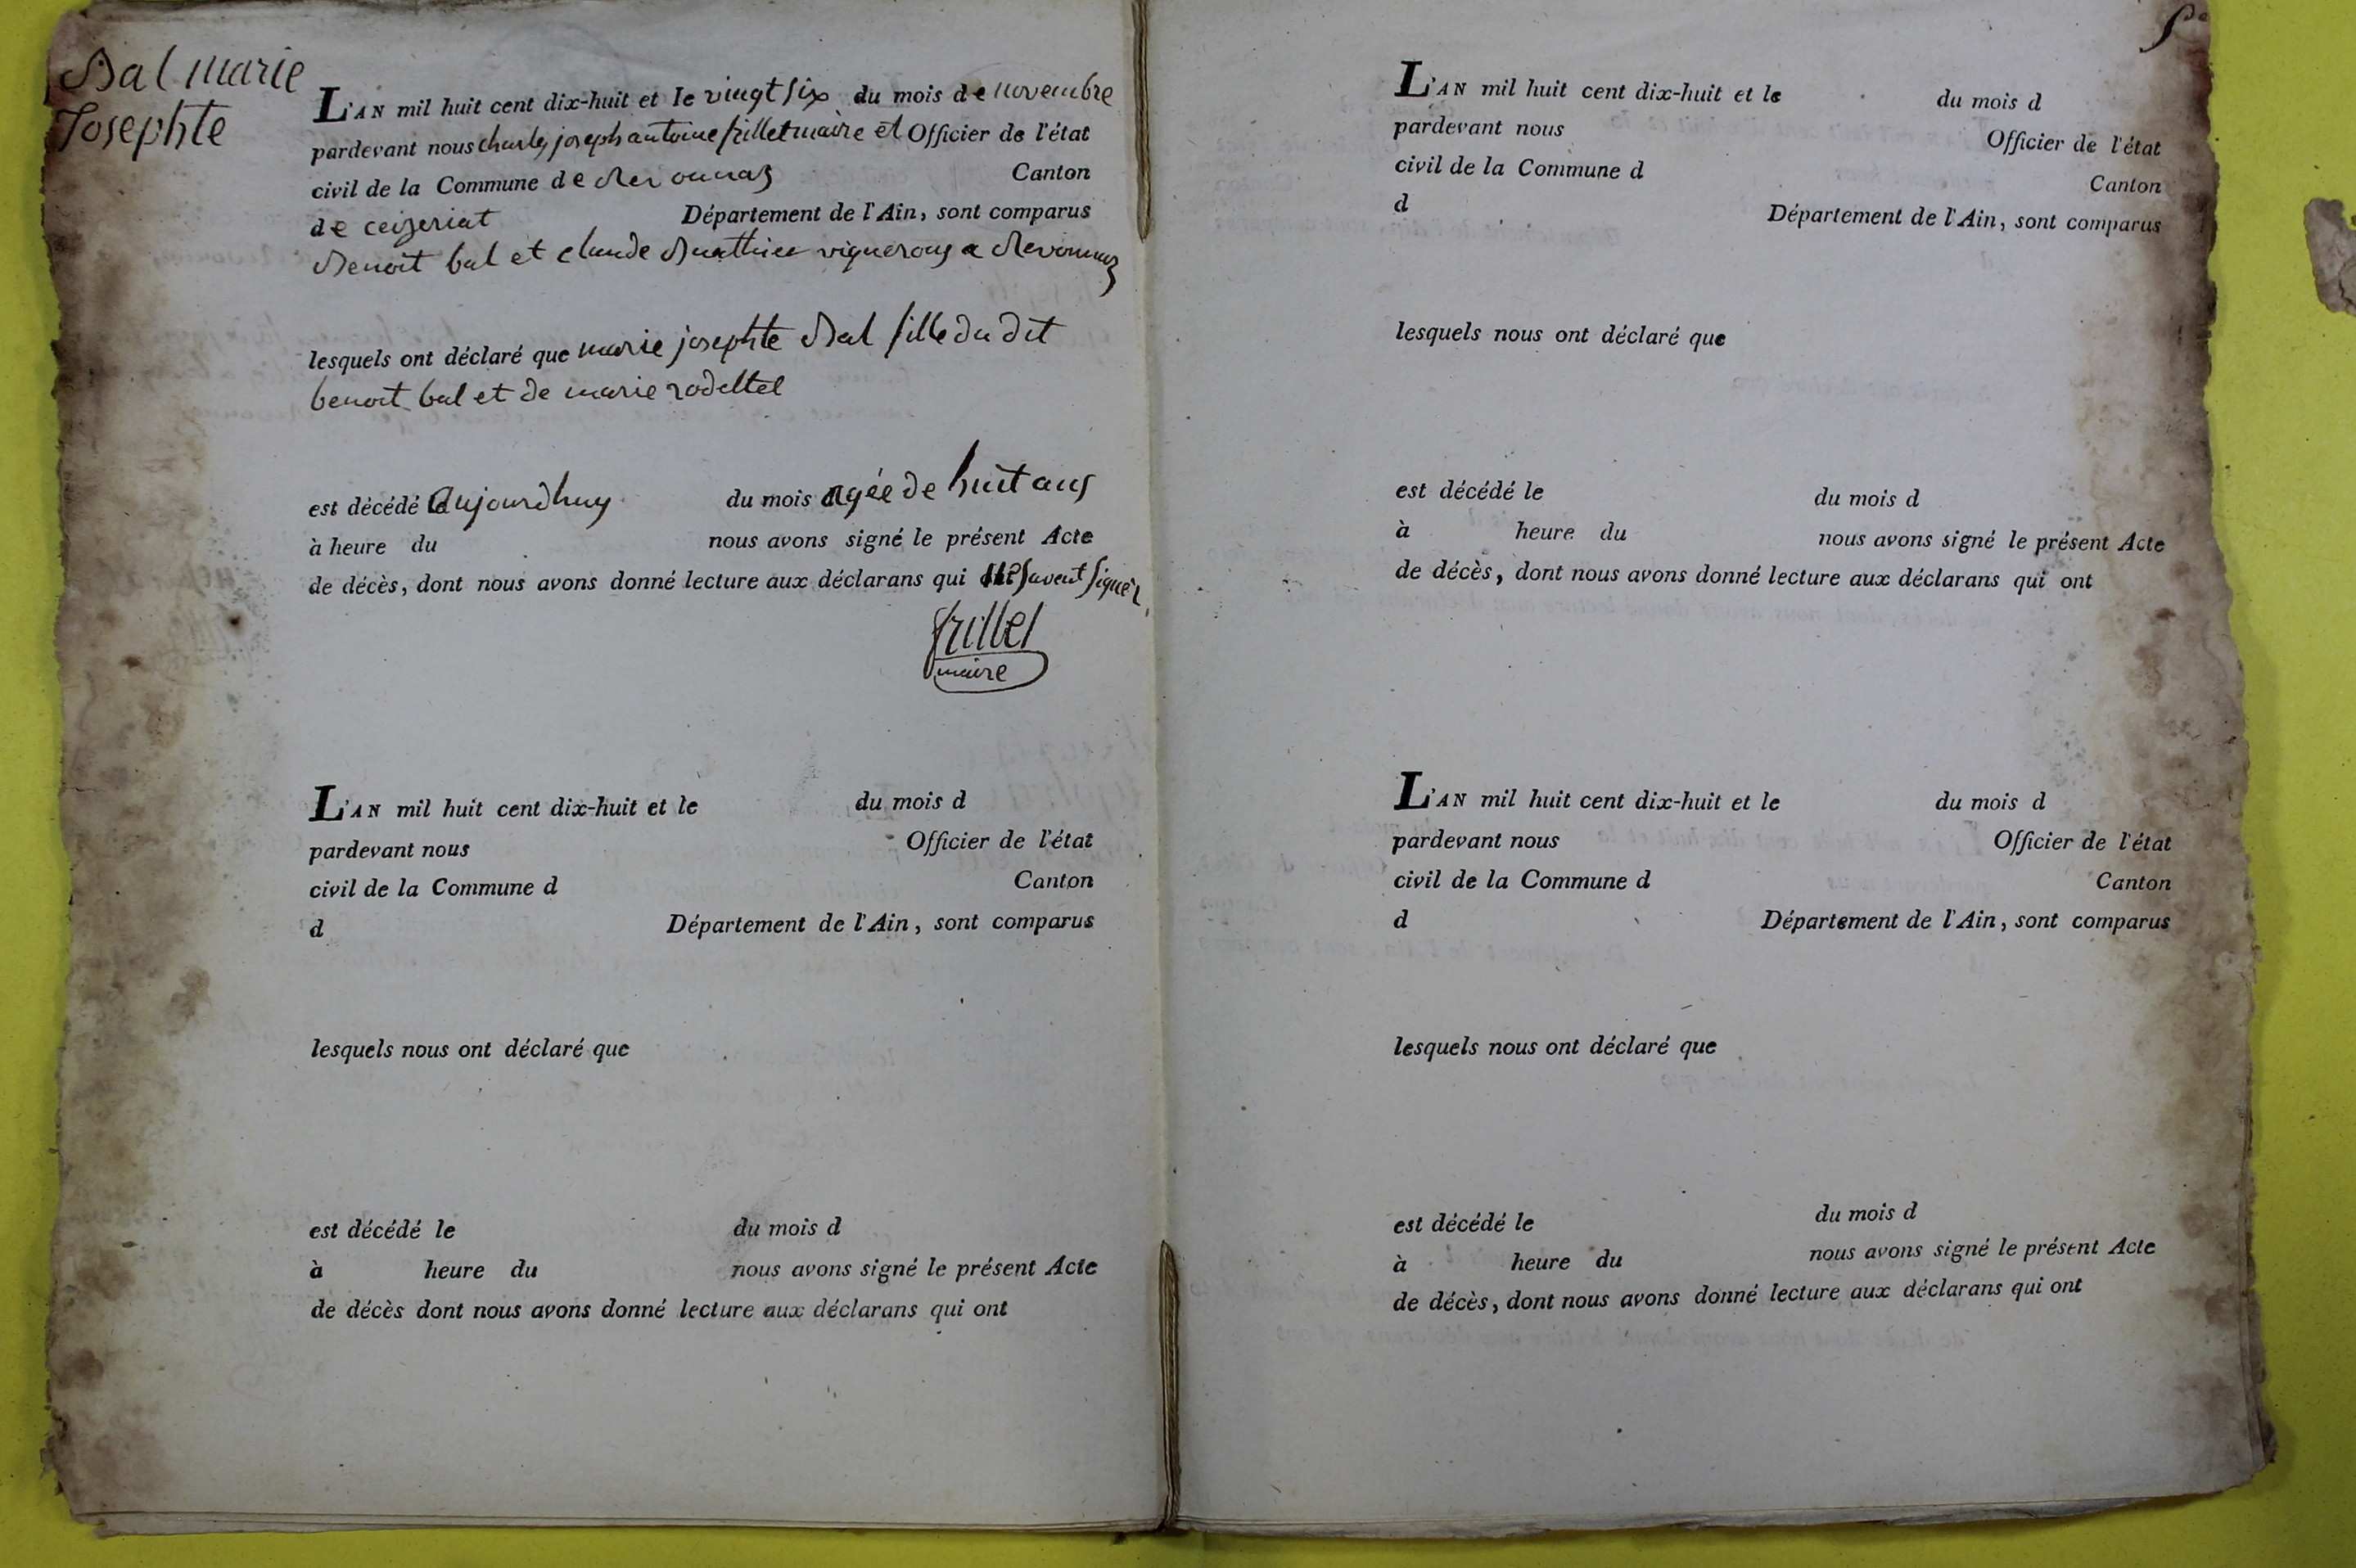 Bal marie
Josephte
L'AN mil huit cent dix-huit et le vingt six du mois de novembre
pardevant nous charles joseph antoine frillet maire et Officier de l'état
civil de la Commune de Revonnas Canton
de ceizeriat Département de l'Ain, sont comparus
Benoit bal et claude Mathieu vignerons a Revonnas
lesquels ont déclaré que marie josephte Bal fille du dit
benoit bal et de marie
est décédé aujourdhuy du mois agée de huit ans
à heure du nous avons signé le présent Acte
de décès, dont nous avons donné lecture aux déclarans qui ne savent signer
frillet
maire
L'AN mil huit cent dix-huit et le du mois d
pardevant nous Officier de l'état
civil de la Commune d Canton
d Département de l'Ain, sont comparus
lesquels nous ont déclaré que
est décédé le du mois d
à heure du nous avons signé le présent Acte
de décès dont nous avons donné lecture aux déclarans qui ont
L'AN mil huit cent dix-huit et le du mois d
pardevant nous Officier de l'état
civil de la Commune d Canton
d Département de l'Ain, sont comparus
lesquels nous ont déclaré que
est décédé le du mois d
à heure du nous avons signé le présent Acte
de décès, dont nous avons donné lecture aux déclarans qui ont
L'AN mil huit cent dix-huit et le du mois d
pardevant nous Officier de l'état
civil de la Commune d Canton
d Département de l'Ain, sont comparus
lesquels nous ont déclaré que
est décédé le du mois d
à heure du nous avons signé le présent Acte
de décès, dont nous avons donné lecture aux déclarans qui ont